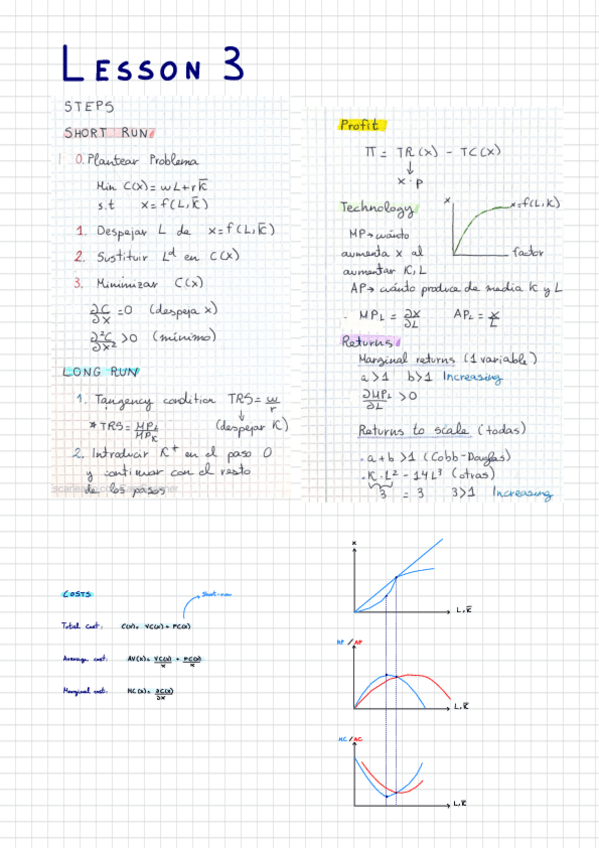 LESSON 3
STEPS
SHORT RUN
0. Plantear Problema
Min C(x) = wL + rK̄
s.t x = f(L, K̄)
1. Despejar L de x = f(L, K̄)
2. Sustituir Lᵈ en C(x)
3. Minimizar C(x)
∂C/∂x = 0 (despeja x)
∂²C/∂x² > 0 (mínimo)
LONG RUN
1. Tangency condition TRS = w/r
* TRS = MPL/MPK (despejar K)
2. Introducir K* en el paso 0
y continuar con el resto
de los pasos
Profit
π = TR(x) - TC(x)
x · p
Technology
x
x = f(L, K)
factor
MP → cuánto
aumenta x al
aumentar K, L
AP → cuánto produce de media K y L
· MPL = ∂x/∂L APL = x/L
Returns
Marginal returns (1 variable)
a > 1 b > 1 Increasing
∂MPL/∂L > 0
Returns to scale (todas)
· a + b > 1 (Cobb-Douglas)
· K · L² - 14L³ (otras)
3 = 3 3 > 1 Increasing
COSTS
Short-run
Total cost: C(x) = VC(x) + FC(x)
Average cost: AV(x) = VC(x)/x + FC(x)/x
Marginal cost: MC(x) = ∂C(x)/∂x
x
L, K̄
MP/AP
L, K̄
MC/AC
L, K̄